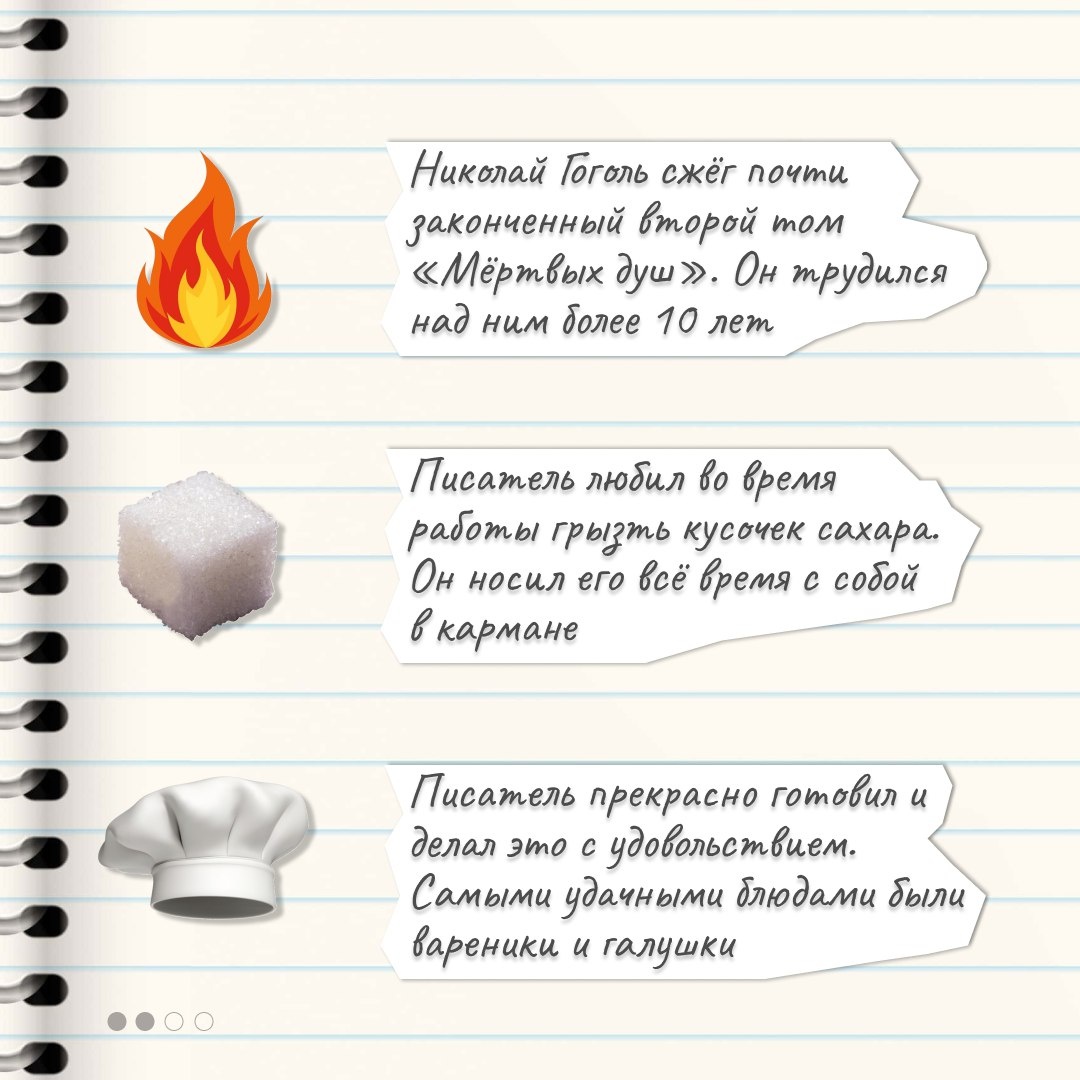 Николай Гоголь сжёг почти
законченный второй том
«Мёртвых душ». Он трудился
над ним более 10 лет
Писатель любил во время
работы грызть кусочек сахара.
Он носил его всё время с собой
в кармане
Писатель прекрасно готовил и
делал это с удовольствием.
Самыми удачными блюдами были
вареники и галушки